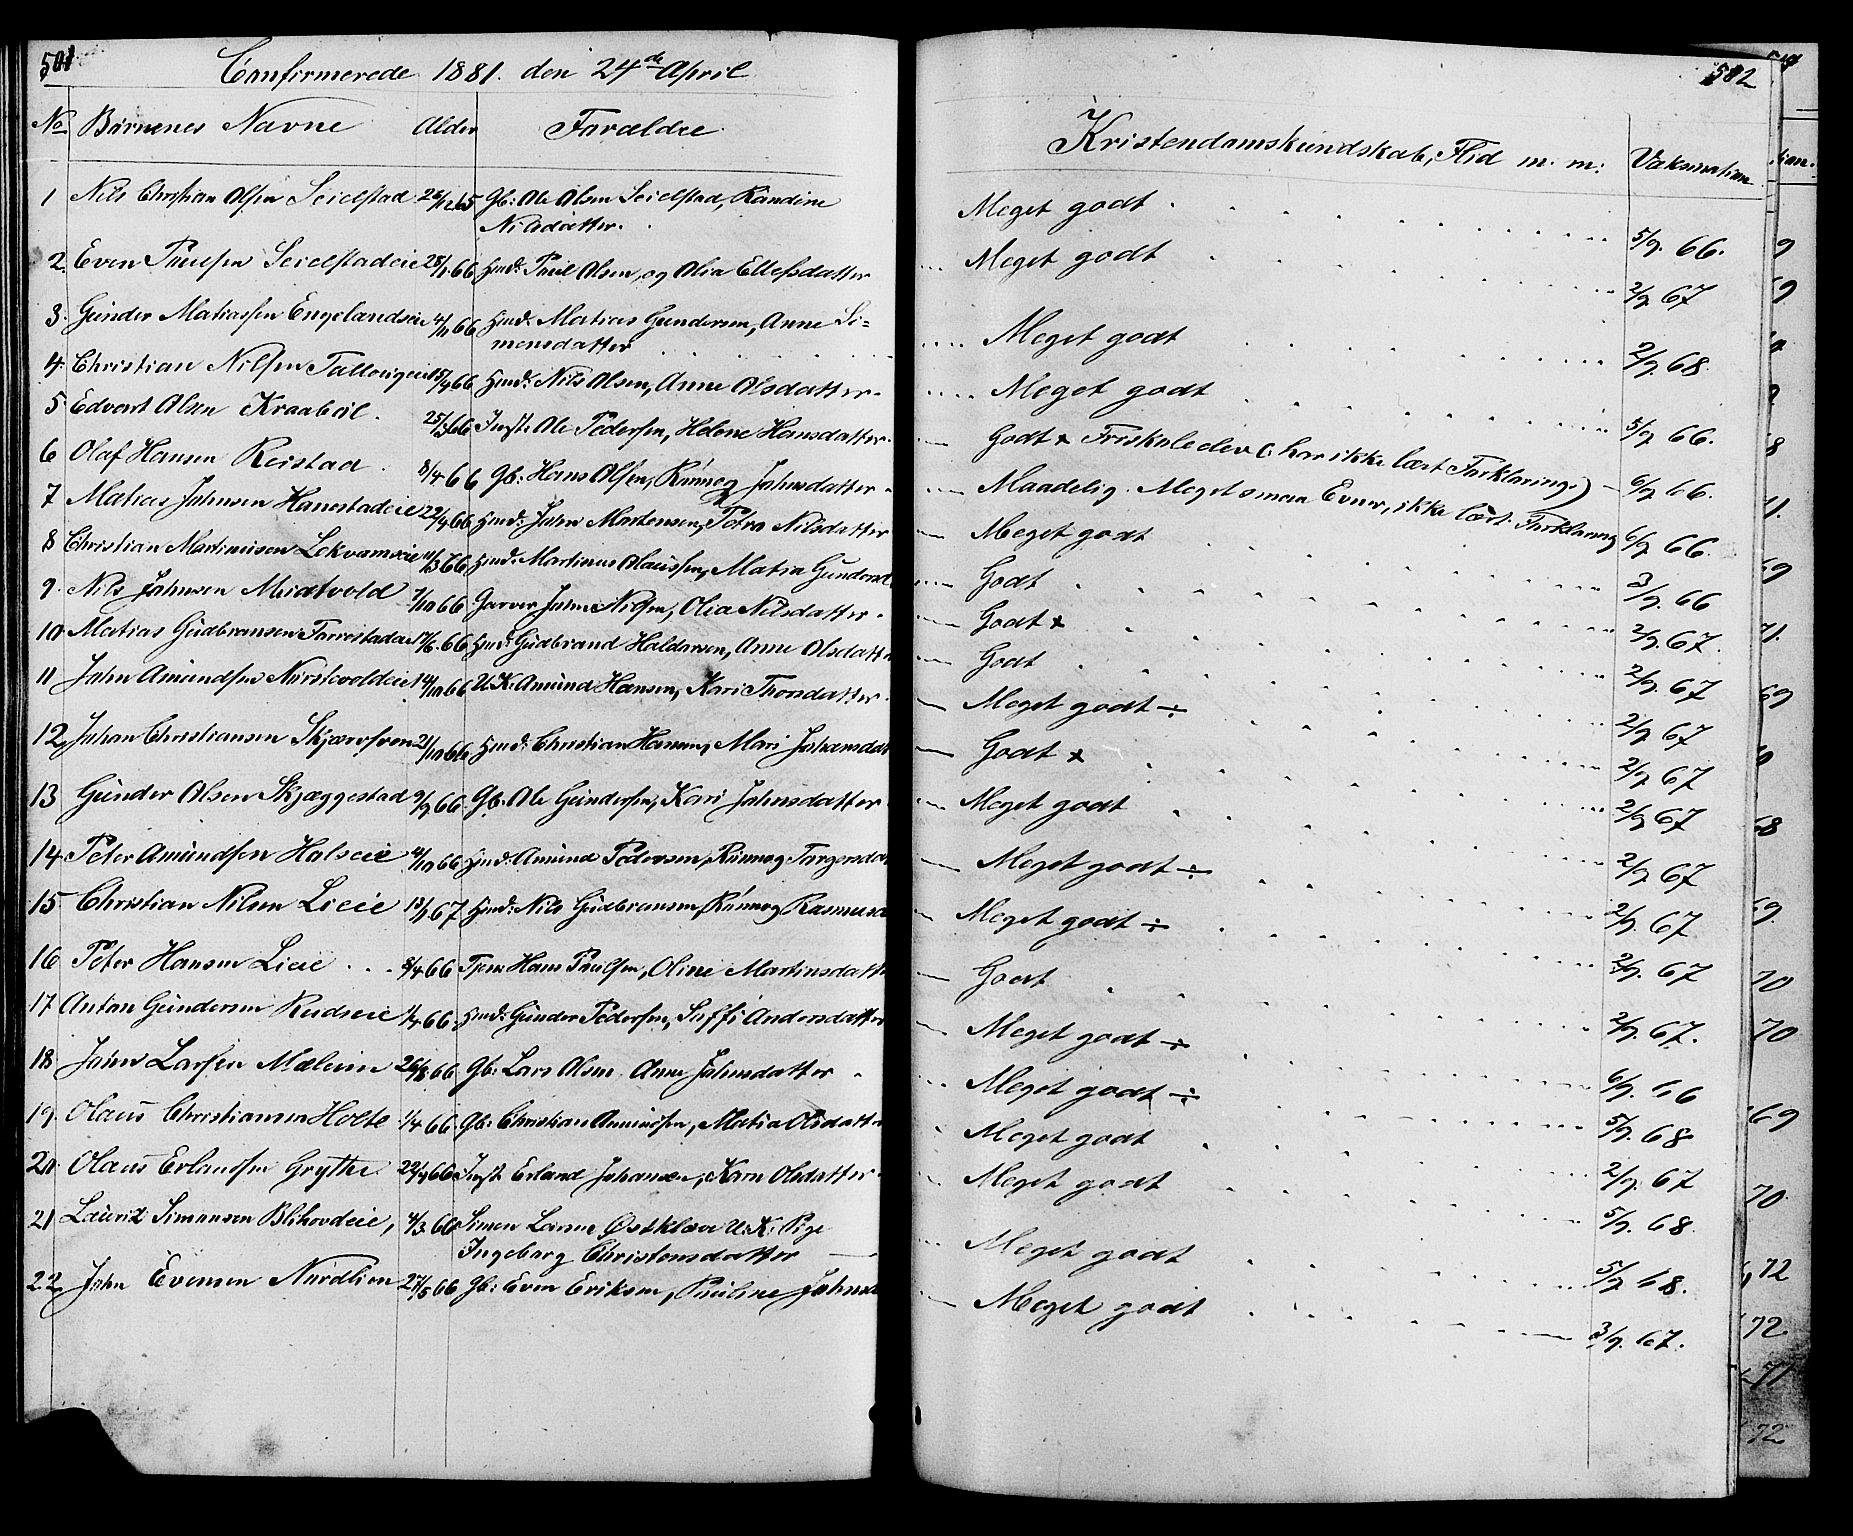 501
Confirmerede 1881. den 24de April
No Børnenes Navne Alder Forældre
1 Nils Christian Olsen Seielstad 26/12 65 Gb: Ole Olsen Seielstad, Randine
Nilsdatter.
2 Even Paulsen Seielstadeie 28/1 66 Hmd: Paul Olsen, og Olea Ellefsdatter
3 Gunder Matiassen Engelandseie 4/11 66 Hmd: Matias Gundersen, Anne Si=
mensdatter
4 Christian Nilsen 15/9 66 Hmd: Nils Olsen, Anne Olsdatter
5 Edvart Olsen Kraabøl. 25/3 66 Ole Pedersen, Helene Hansdatter
6 Olaf Hansen Reistad 8/4 66 Gb: Hans Olsen, Rønnog Johnsdatter
7 Matias Johnsen Hanestadeie 22/4 66 Hmd: John Mortensen, Petra Nilsdatter
8 Christian Martinusen Lokvamseie 11/3 66 Hmd: Martinus Olaussen, Matea
9 Nils Johnsen Midtvold 7/10 66 Garver John Nilsen, Olea Nilsdatter
10 Matias Gudbransen 17/6. 66 Hmd: Gudbrand Haldorsen, Anne
11 John Amundsen 14/10 66 U.K. Amund Hansen, Kari Thorsdatter
12 Johan Christiansen 21/10 66 Hmd: Christian Hansen, Mari
13 Gunder Olsen Skjæggestad 9/9 66 Gb: Ole Gundersen, Kari Johnsdatter
14 Peter Amundsen Halseie 4/10 66 Hmd: Amund Pedersen, Rønnog
15 Christian Nilsen Lieie 13/1 67 Hmd: Nils Gudbransen, Rønnog
16 Peter Hansen Lieie 8/4 66 Hans Paulsen, Oline
17 Anton Gundersen Rudseie 1/4 66 Hmd: Gunder Pedersen, Andersdatter
18 John Larsen Mælum 26/8 66 Gb: Lars Olsen Anne Johnsdatter
19 Olaus Christiansen Holte 1/4 66 Gb: Christian Amundsen, Matea
20 Olaus Erlandsen Grytte 22/4 66 Erland Johansen, Karn Olsdatter
21 Lauritz Simensen Blihovdeie, 4/3 66 Simen Larsen Østklev U.K. Pige
Ingeborg Christensdatter
22 John Evensen Nordlien 27/5 66 Gb: Even Eriksen, Pauline
502
Kristendomskundskab, Flid m. m: Vaksination
Meget godt 5/9. 66.
Meget godt 2/9 67
Meget godt 2/9. 68.
Meget godt 5/9 66.
Godt x Friskoleelev (: har ikke lært Forklaring:) 6/9 66.
Maadelig. Meget smaa Evner, ikke lært Forklaring 6/9 66.
Meget godt 3/9. 66
Godt 2/9. 67.
Godt x 2/9. 67
Godt 2/9 67
Meget godt ÷ 2/9 67
Godt x 2/9 67
Meget godt 2/9 67
Meget godt ÷ 2/9. 67
Meget godt ÷ 2/9. 67
Godt 2/9. 67.
Meget godt ÷ 6/9. 66
Meget godt ÷ 5/9. 68
Meget godt 2/9. 67
Meget godt 5/9. 68.
Meget godt 5/9 68.
Meget godt 3/9. 67.